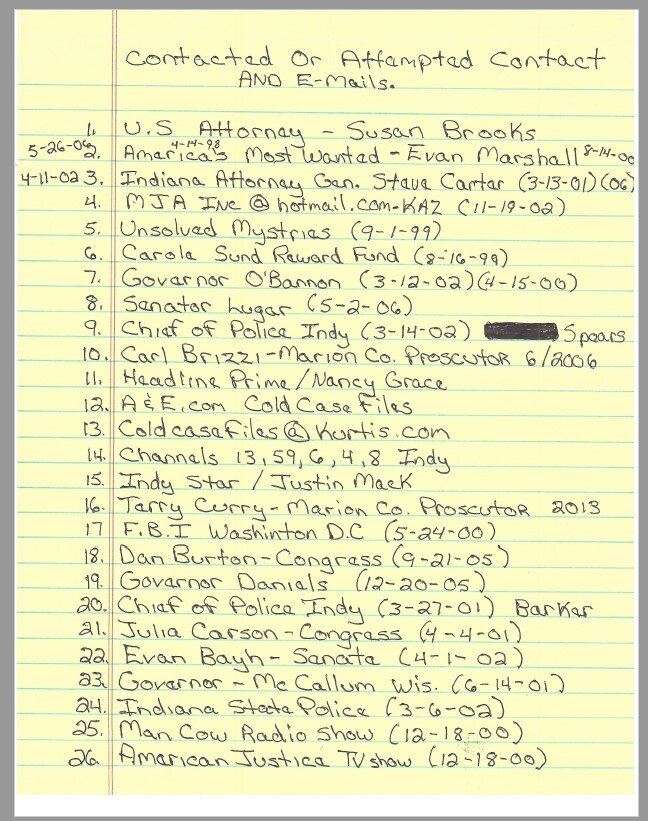 Contacted Or Attampted Contact
AND E-Mails.
1. U.S Attornay - Susan Brooks
5-26-06 2. America's 4-14-98 Most Wanted - Evan Marshall 8-14-00
4-11-02 3. Indiana Attornay Gen. Steve Carter (3-13-01) (06)
4. MJA Inc @ hotmail.com-KAZ (11-19-02)
5. Unsolved Mystries (9-1-99)
6. Carole Sund Reward Fund (8-16-99)
7. Governor O'Bannon (3-12-02)(4-15-00)
8. Senator Lugar (5-2-06)
9. Chief of Police Indy (3-14-02) Spears
10. Carl Brizzi-Marion Co. Proscutor 6/2006
11. Headline Prime/Nancy Grace
12. A & E.com Cold Case Files
13. Coldcasefiles@Kurtis.com
14. Channels 13, 59, 6, 4, 8 Indy
15. Indy Star / Justin Mack
16. Terry Curry-Marion Co. Proscutor 2013
17 F.B.I Washinton D.C (5-24-00)
18. Dan Burton-Congress (9-21-05)
19. Governor Daniels (12-20-05)
20. Chief of Police Indy (3-27-01) Barker
21. Julia Carson-Congress (4-4-01)
22. Evan Bayh-Senate (4-1-02)
23. Governor - McCallum Wis. (6-14-01)
24. Indiana State Police (3-6-02)
25. Man Cow Radio Show (12-18-00)
26. American Justice TV show (12-18-00)